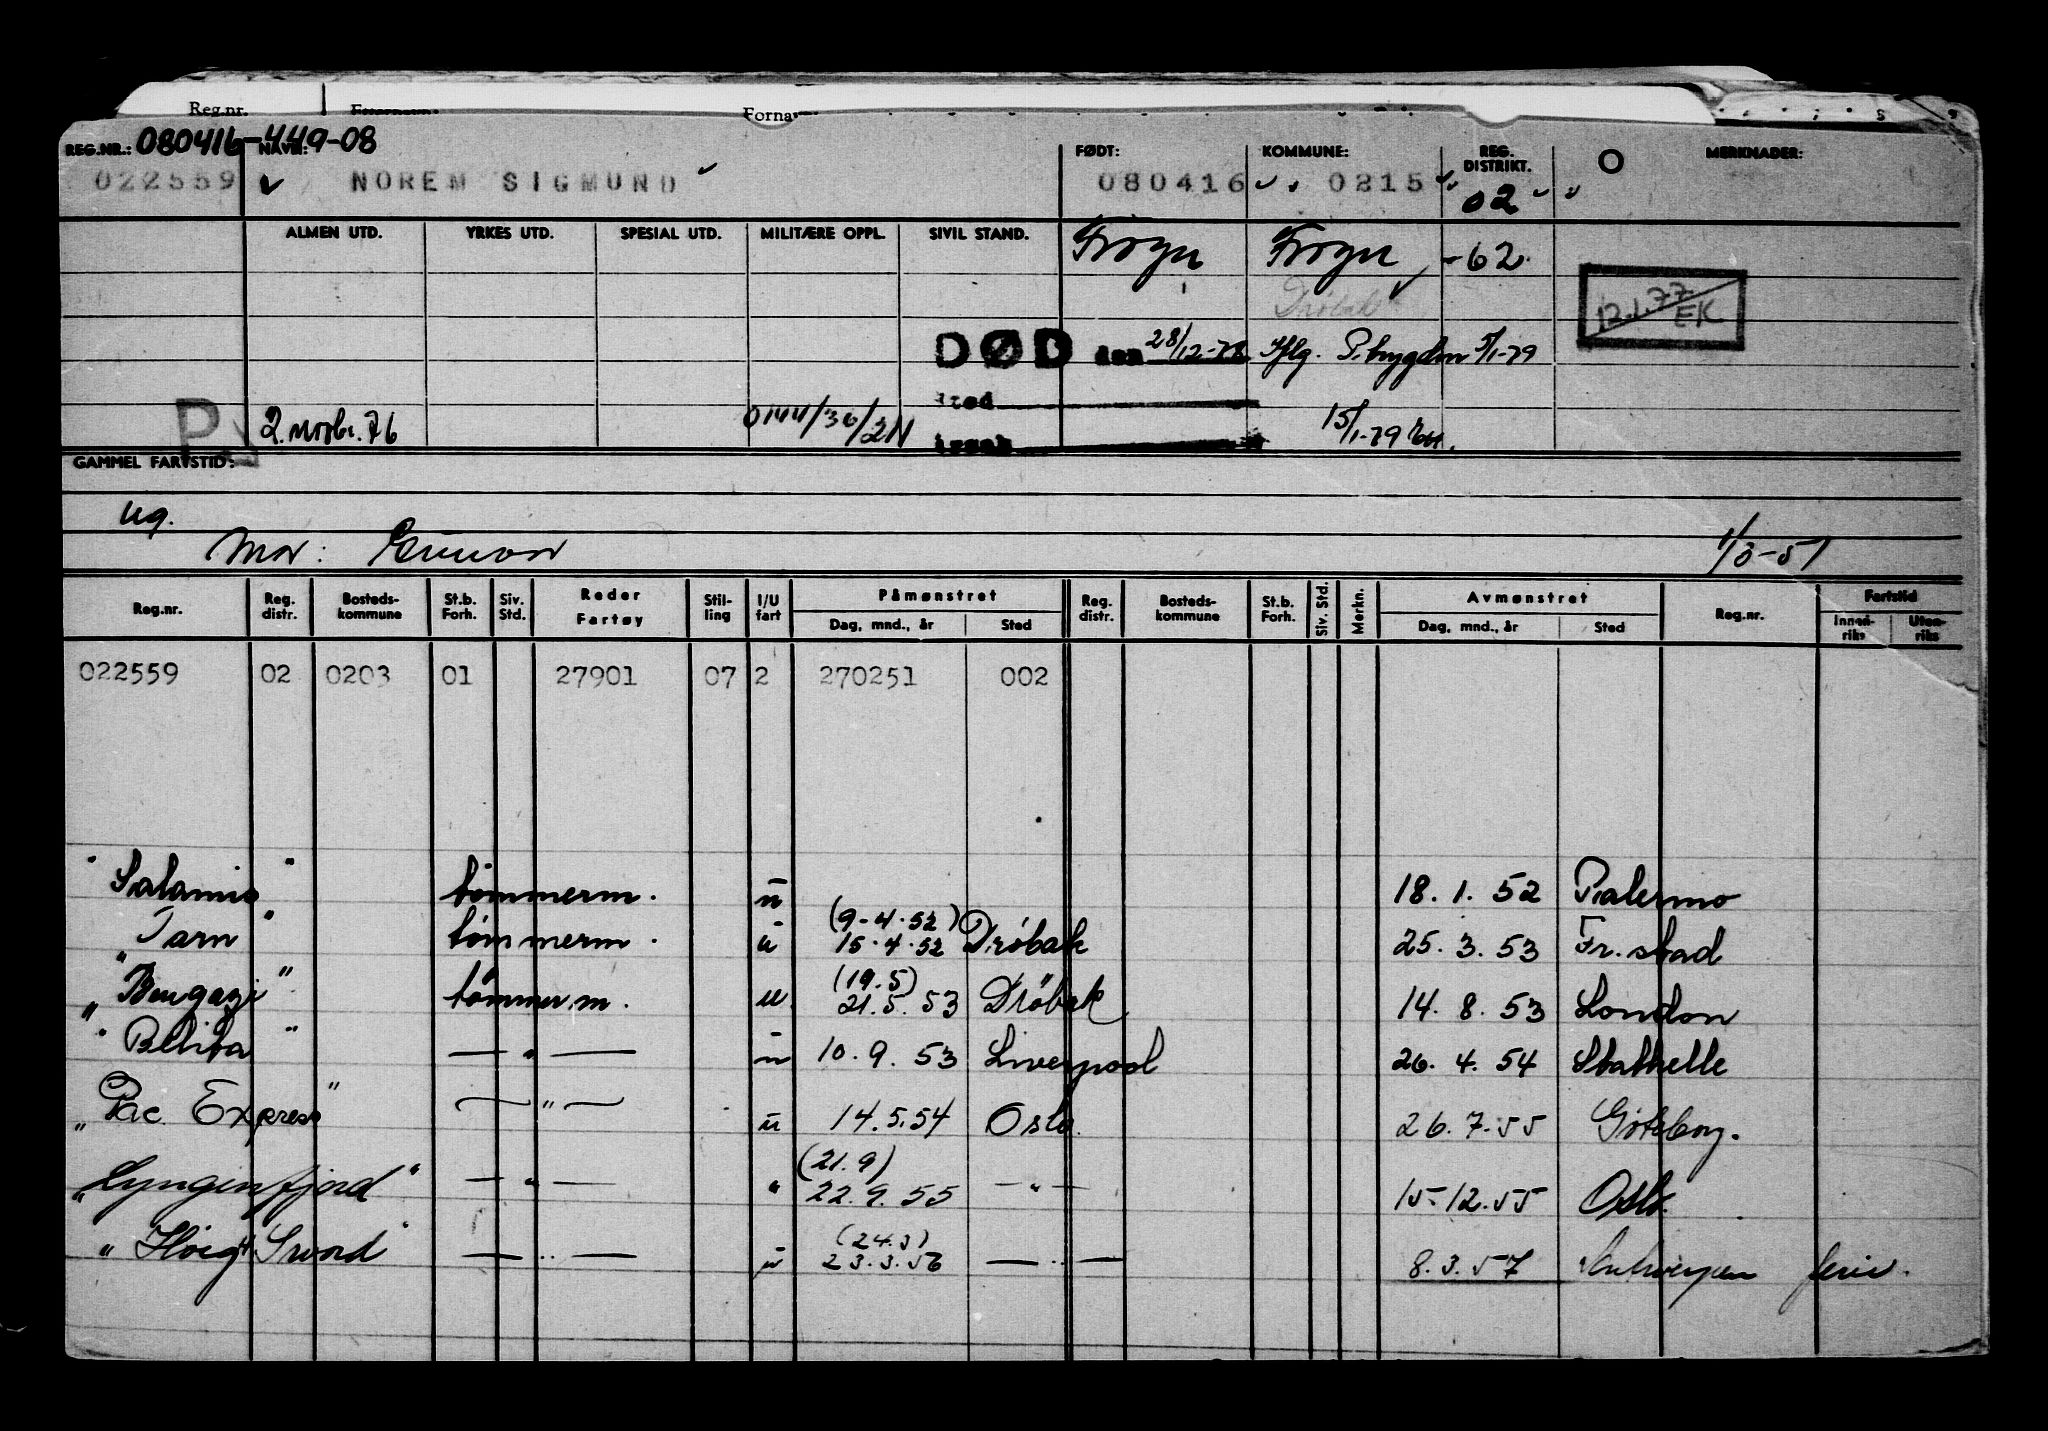 Reg.nr. Etternavn. Forna
REG.NR.: 080416-449-08 NAVN: FØDT: KOMMUNE: REG. DISTRIKT. O MERKNADER:
022559 NOREM SIGMUND 080416 0215 02
ALMEN UTD. YRKES UTD. SPESIAL UTD. MILITÆRE OPPL. SIVIL STAND. Frogn Frogn -62
Drøbak
12.1.77 EK
DØD den 28/12-78 Iflg. P.bygden 5/1-79
sted
P 2. novbr. 76 0144/36/2N årsak 15/1-79
GAMMEL FARTSTID:
ug.
Mor: Gunvor 1/3-51
Reg.nr. Reg. distr. Bosteds-kommune St.b. Forh. Siv. Std. Reder Fartøy Stil-ling I/U fart Påmønstret Dag, mnd., år Sted Reg. distr. Bosteds-kommune St.b. Forh. Siv. Std. Merkn. Avmønstret Dag, mnd., år Sted Reg.nr. Fartstid Innen-riks Uten-riks
022559 02 0203 01 27901 07 2 270251 002
"Salamis" tømmerm. u 18.1.52 Palermo
(9-4-52)
"Tarn" tømmerm. u 15.4.52 Drøbak 25.3.53 Fr.stad
(19.5)
"Bengazi" tømmerm. u 21.5.53 Drøbak 14.8.53 London
"Belita" — " — u 10.9.53 Liverpool 26.4.54 Stathelle
"Pac. Express" — " — u 14.5.54 Oslo. 26.7.55 Gøteborg.
(21.9)
"Lyngenfjord" — " — " 22.9.55 — " — 15.12.55 Oslo.
(24.3)
"Høegh Sword" — " — u 23.3.56 — " — 8.3.57 Antwerpen ferie.